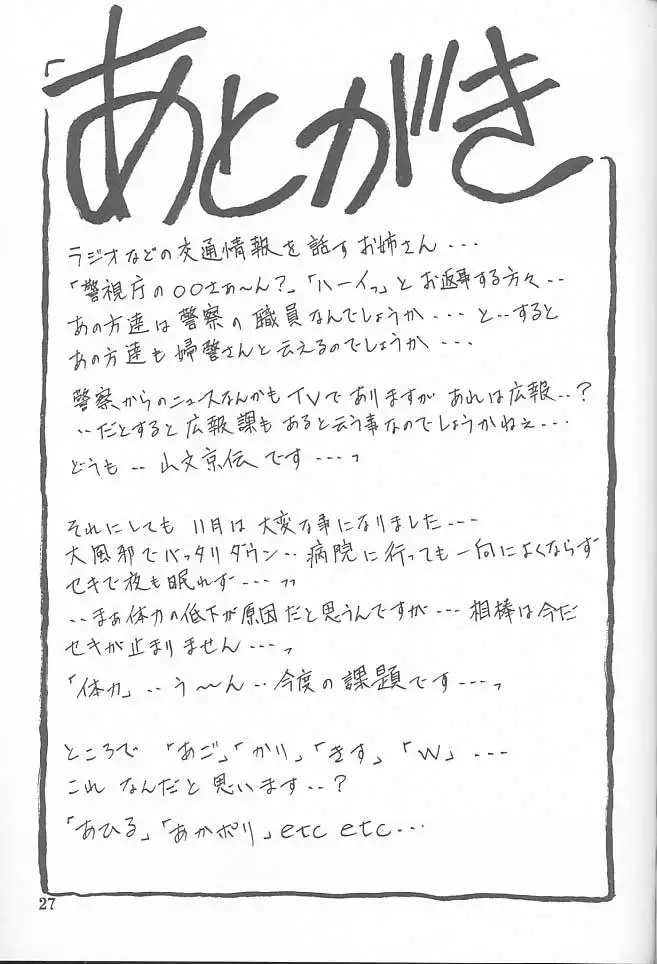 あとがき
ラジオなどの交通情報を話すお姉さん・・・
「警視庁の〇〇さぁ～ん?」「ハーイっ」とお返事する方々・・
あの方達は警察の職員なんでしょうか・・・と・・すると
あの方達も婦警さんと云えるのでしょうか・・・
警察からのニュースなんかもTVでありますがあれは広報・・?
・・だとすると広報課もあると云う事なのでしょうかねぇ・・・
どうも・・山文京伝です・・・っ
それにしても11月は大変な事になりました・・・
大風邪でバッタリダウン・・病院に行っても一向によくならず
セキで夜も眠れず・・・っっ
・・まぁ体力の低下が原因だと思うんですが・・・相棒は今だ
セキが止まりません・・・っ
「体力」・・う～～ん・・今度の課題です・・・っ
ところで「あご」「かり」「きす」「W」・・・
これなんだと思います・・?
「あひる」「あかポリ」etc etc・・・
27